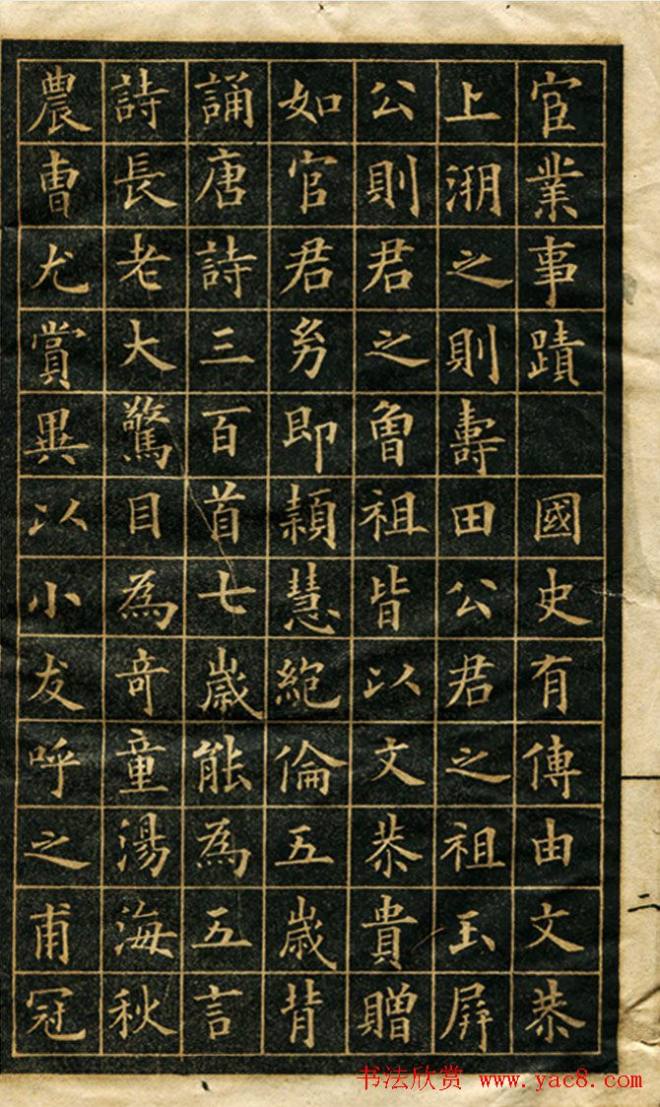 官業事蹟 國史有傳由文恭
上溯之則壽田公君之祖玉屏
公則君之曾祖皆以文恭貴贈
如官君幼即穎慧絶倫五歲背
誦唐詩三百首七歲能為五言
詩長老大驚目為奇童湯海秋
農曹尤賞異以小友呼之甫冠
二
书法欣赏 www.yac8.com